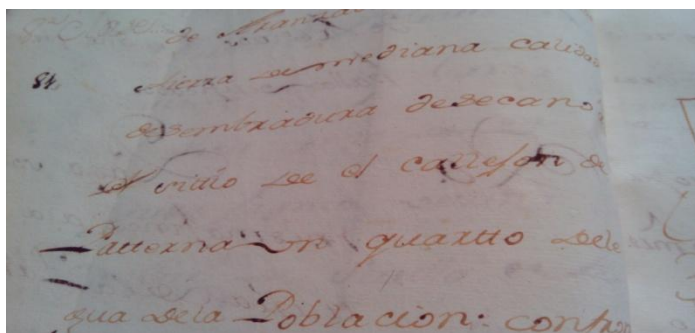 de Manzan
84. tierra de mediana calidad
desembradura desecano
el sitio de el callejon de
Paterna un quartto dele
gua dela Poblacion: conf